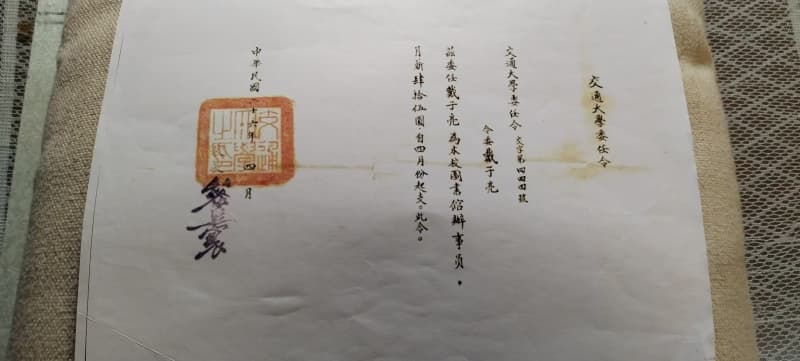 交通大學委任令
交通大學委任令 文字第四四四號
令委戴子亮
茲委任戴子亮為本校圖書館辦事員，
月薪肆拾伍圓自四月份起支。此令。
中華民國二十六年 四 月